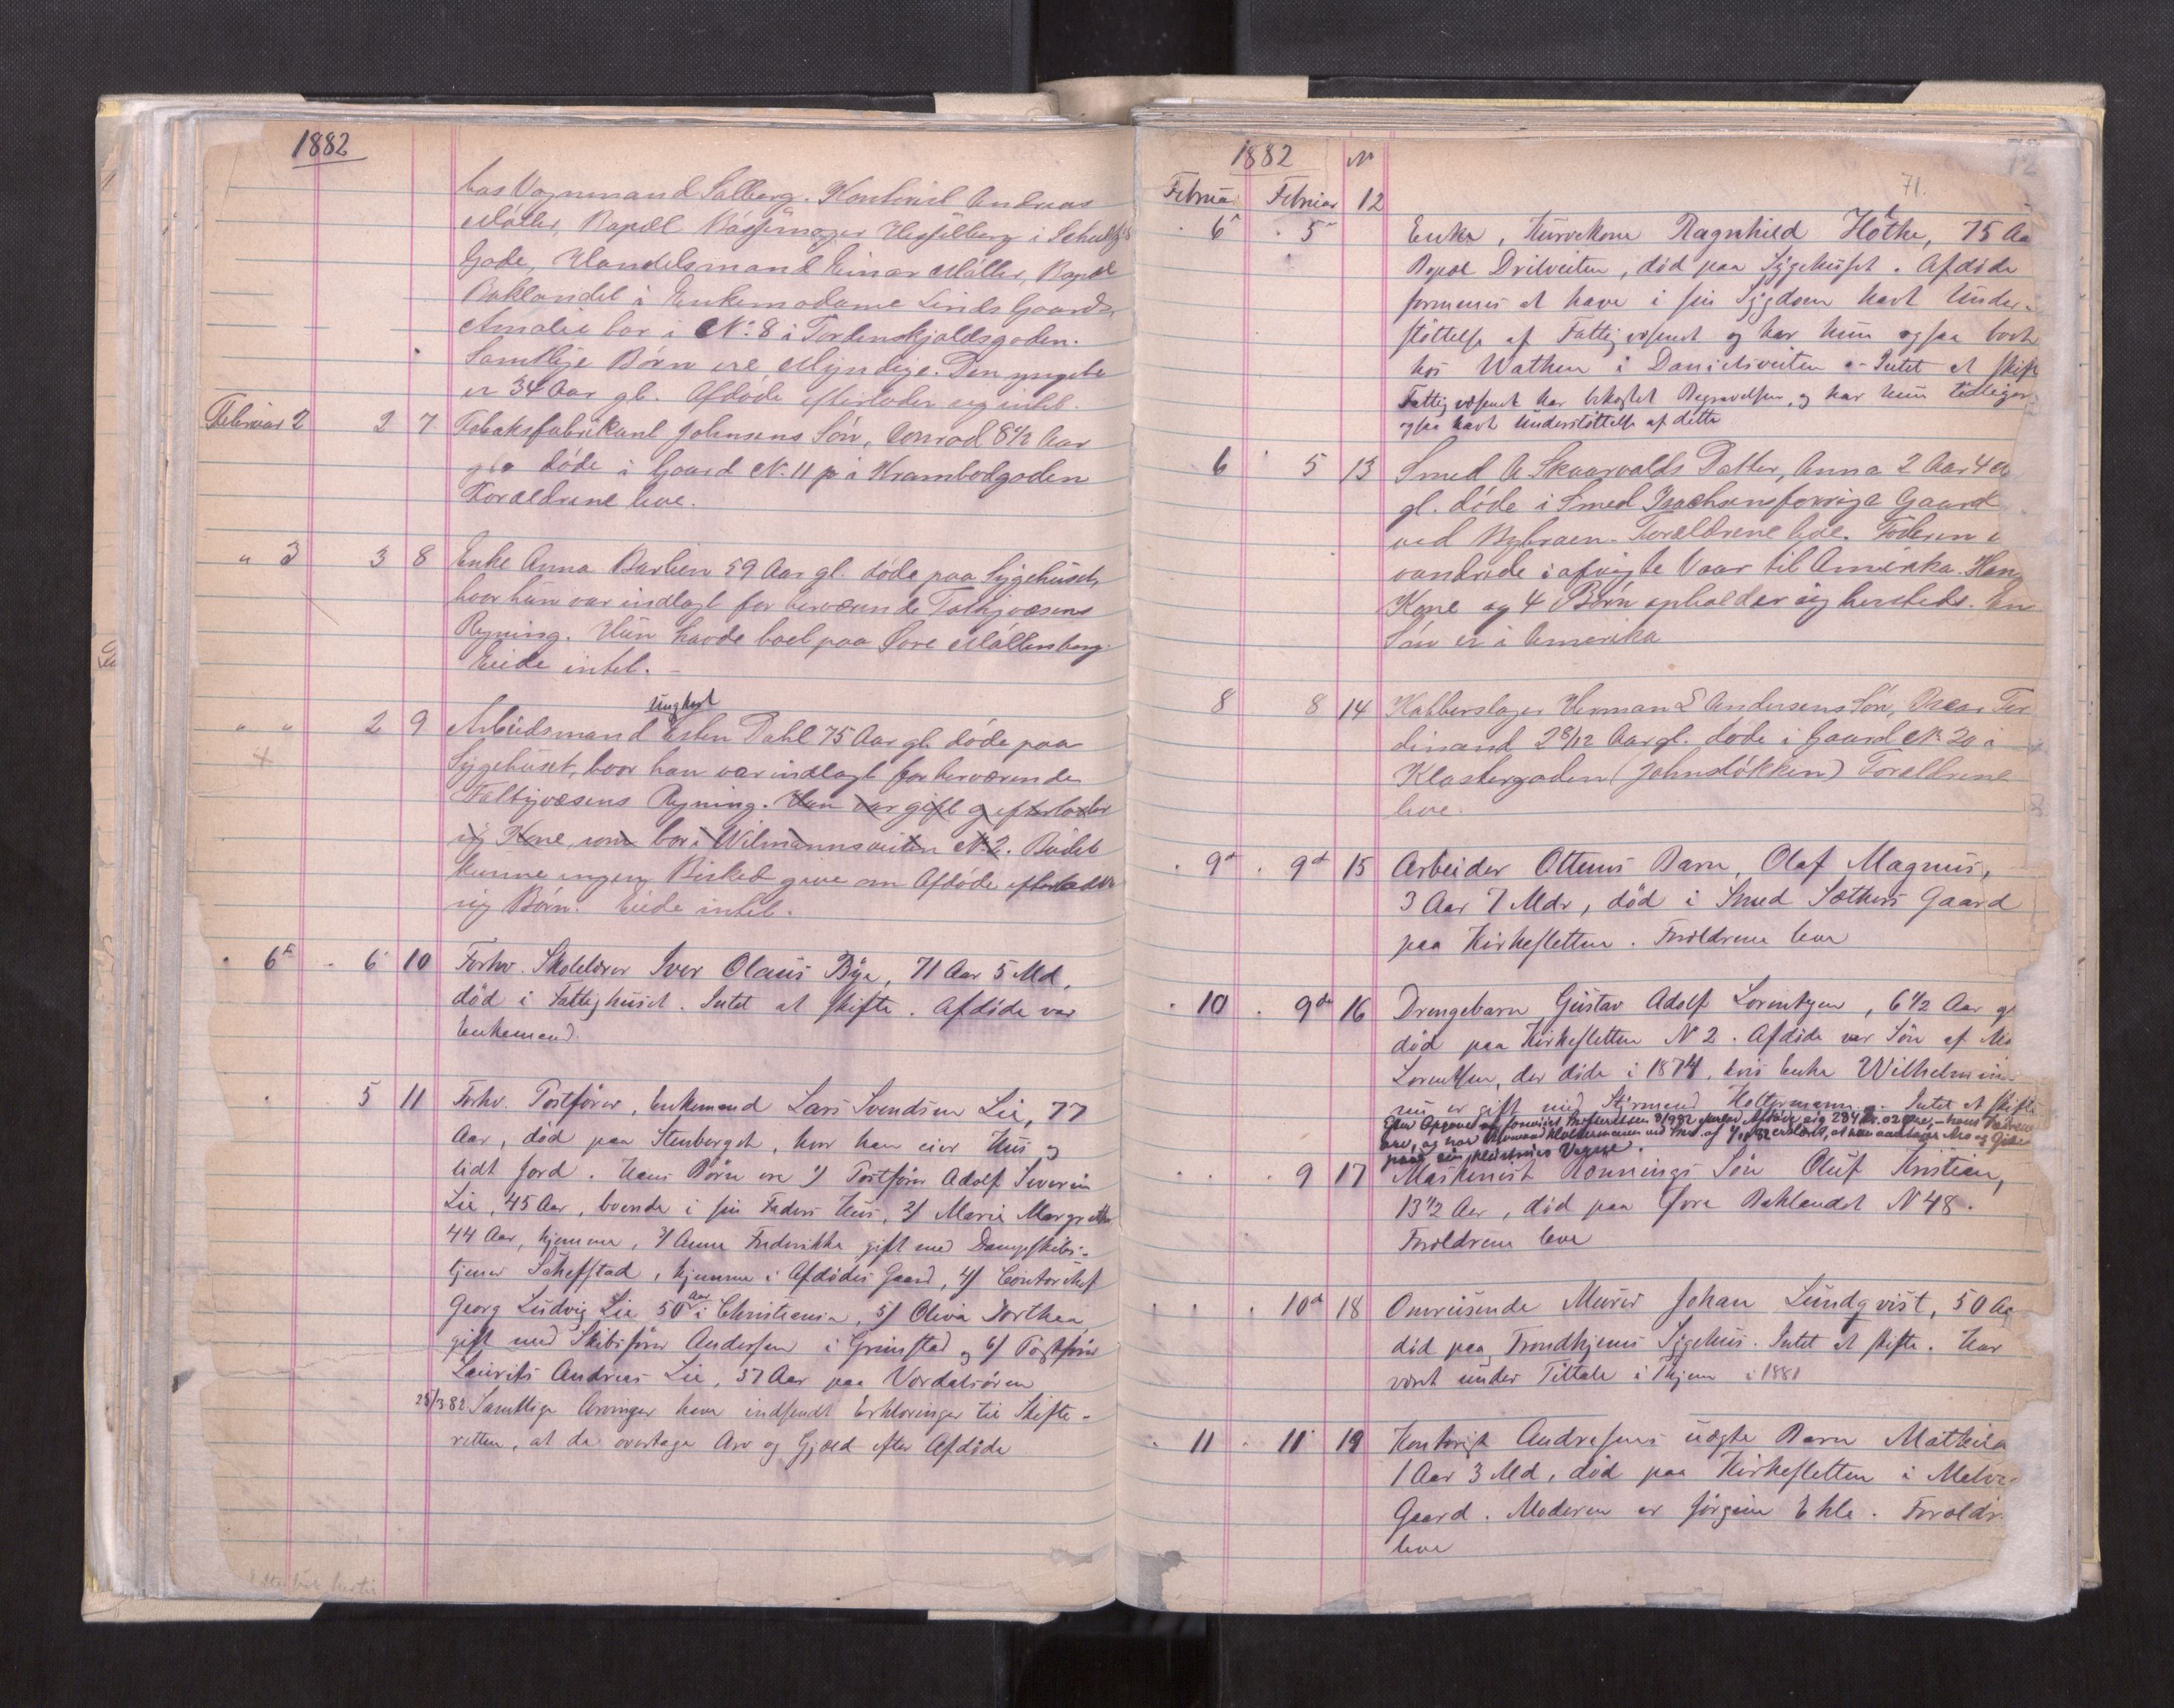 1882
hos Vognmand Salberg. Kontorist Andreas
Møller, Bopæl Bøssemager Hesselberg i Schultz's
Gade, Handelsmand Einar Møller, Bopæl
Baklandet i Enkemadame Linds Gaard,
Amalie bor i No. 8 i Tordenskjoldsgaden.
Samtlige Børn ere Myndige. Den yngste
er 34 Aar gl. Afdøde efterlader sig intet.
Februar 2 2 7 Tobaksfabrikant Johnsens Søn, Conrad 8 1/2 Aar
gl. døde i Gaard No. 11 i Krambodgaden
Forældrene leve.
" 3 3 8 Enke Anna Barlien 59 Aar gl. døde paa Sygehuset,
hvor hun var indlagt for herværende Fattigvæsens
Regning. Hun havde boet paa Øvre Møllenberg.
Eiede intet. -
ungkarl
" " 2 9 Arbeidsmand Esten Dahl 75 Aar gl. døde paa
Sygehuset, hvor han var indlagt for herværende
Fattigvæsens Regning. Han var gift og efterlader
sig Kone, som bor i Wilmannsveiten No. 2. Budet
kunne ingen Besked give om Afdøde efterlader
sig Børn. Eiede intet.
6te 6 10 Forhv. Skolelærer Iver Olaus Bye, 71 Aar 5 Md,
død i Fattighuset. Intet at skifte. Afdøde var
Enkemand.
5 11 Forhv. Postfører, Enkemand Lars Svendsen Lie, 77
Aar, død paa Stenberget, hvor han eier Hus og
lidt Jord. Hans Børn ere 1/ Postfører Adolf Severin
Lie, 45 Aar, boende i sin Faders Hus, 2/ Marie Margrethe
44 Aar, hjemme, 3/ Anne Frederikke gift med Dampskibs-
tjener Schefstad, hjemme i Afdødes Gaard, 4/ Contorchef
Georg Ludvig Lie 50 Aar i Christiania, 5/ Oliva Dorthea
gift med Skibsfører Andersen i Grimstad og 6/ Postfører
Laurits Andreas Lie, 37 Aar paa Værdalsøren
25/3 82 Samtlige Arvinger have indsendt Erklæringer til Skifte-
retten, at de overtage Arv og Gjæld efter Afdøde
1882 No
71.
Februar Februar 12
6 5 Enke, Kurvekone Ragnhild Hothe, 75 Aa
Bopæl Dritveiten, død paa Sygehuset. Afdøde
formenes at have i sin Sygdom havt Under-
støttelse af Fattigvæsenet og har hun ogsaa boet
hos Wathen i Danielsveiten - Intet at skift
Fattigvæsenet har bekostet Begravelsen, og har hun tidligere
ogsaa havt Understøttelse af dette
6 5 13 Smed A. Skaarvolds Datter, Anna 2 Aar 4 M
gl. døde i Smed Isachsens forrige Gaard
ved Bybroen. Forældrene leve. Faderen u
vandrede i afvigte Vaar til Amerika. Hans
Kone og 4 Børn opholder sig hersteds. En
Søn er i Amerika
8 8 14 Kobberslager Herman L Andersens Søn, Oscar Fer
dinand 2 8/12 Aar gl. døde i Gaard No. 20 i
Klostergaden (Johnsløkken) Forældrene
leve.
9de 9de 15 Arbeider Ottems Barn, Olaf Magnus,
3 Aar 7 Mdr, død i Smed Sæthers Gaard
paa Kirkesletten. Forældrene leve
10 9de 16 Drengebarn Gustav Adolf Lorentzen, 6 1/2 Aar gl
død paa Kirkesletten No 2. Afdøde var Søn af
Lorentsen, der døde i 1874, hvis Enke Wilhelmine
nu er gift med Styrmand Holtermann. Intet at skifte
Efter Opgave fra 284 Kr. 02 Øre, - hans Fædrene
arv, og har Holtermann ved af erklæret, at han overtager Arv og Gjæld
paa sin
9 17 Maskinist Rønnings Søn Oluf Kristian,
13 1/2 Aar, død paa Øvre Baklandet No 48.
Forældrene leve
10de 18 Omreisende Murer Johan Lundqvist, 50 Aa
død paa Trondhjems Sygehus. Intet at skifte. Har
været under Tiltale i Thjem i 1881
11 11 19 Kontorist Andresens uægte Barn Mathilde
1 Aar 3 Md, død paa Kirkesletten i
Gaard. Moderen er Jørgine Ekle. Forældr.
leve